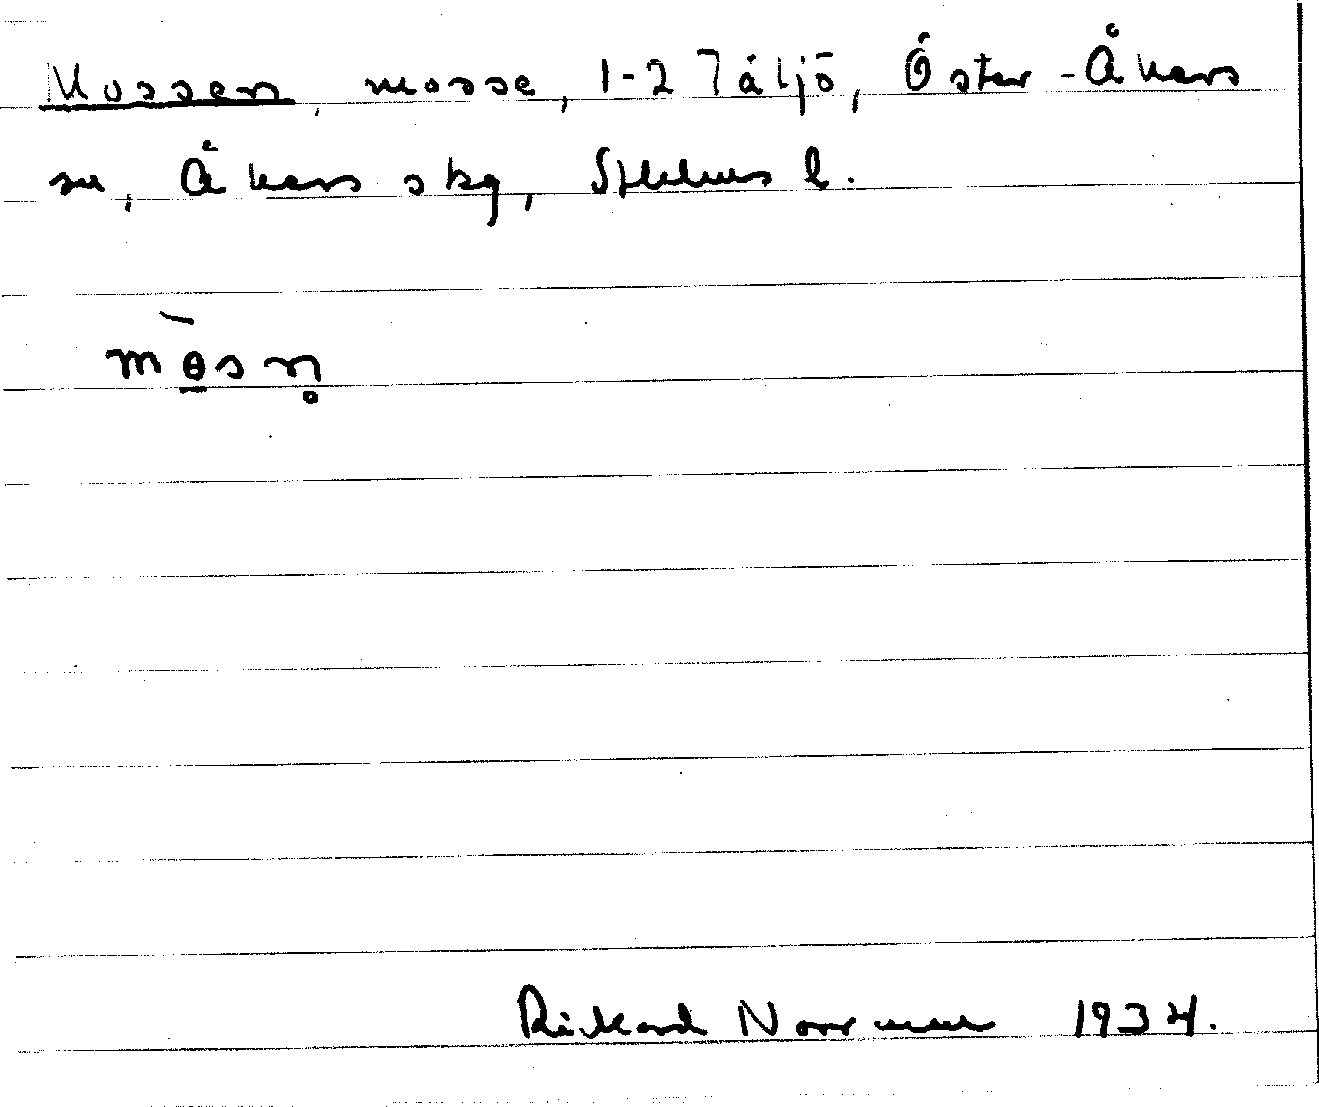 Mossen, mosse, 1-2 Täljö, Öster-Åkers
sn, Åkers skg, Sthlms l.
mɵ̀sn̥
Rickard Norrman 1934.